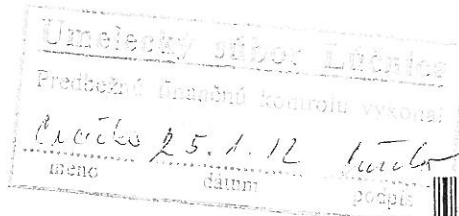 Umelecký súbor Lúčnica
Predbežnú finančnú kontrolu vykonal
25.1.12
meno dátum podpis